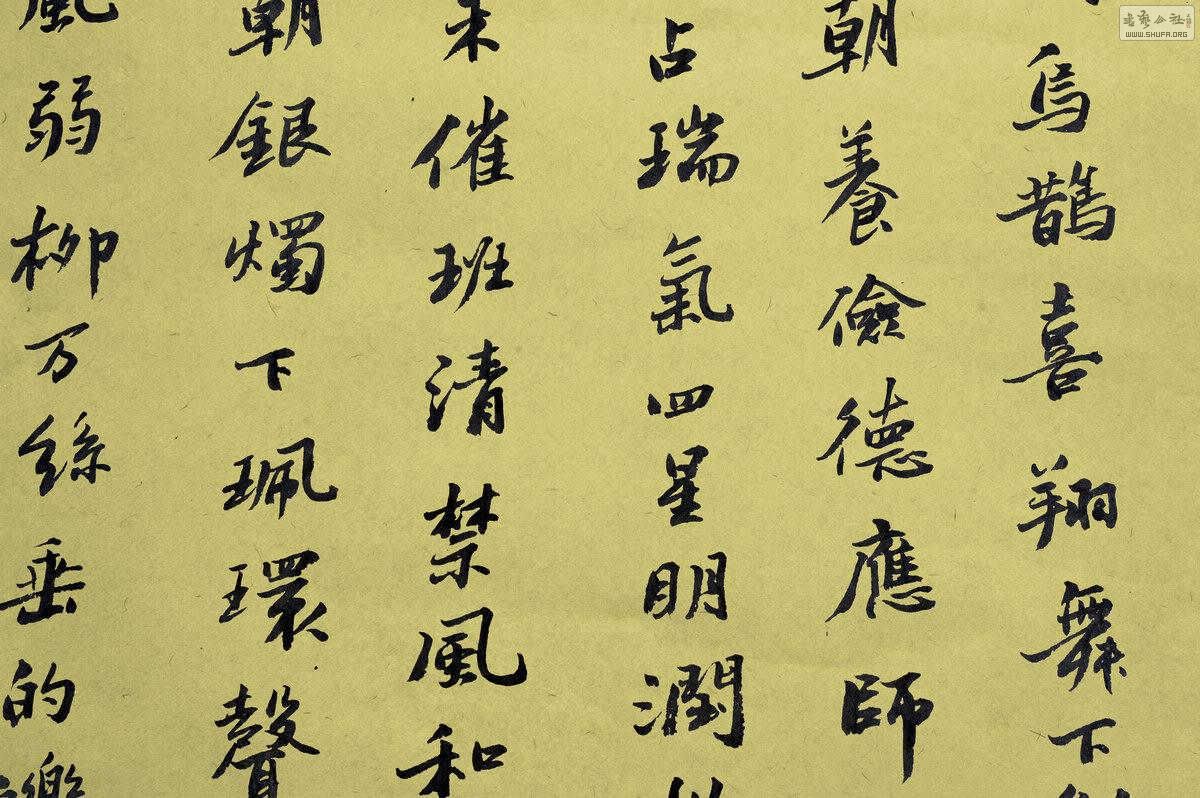 烏鵲喜翔舞下
朝養儉德應師
占瑞氣四星明潤
未催班清禁風和
朝銀燭下珮環聲
風弱柳万絲垂的
書藝公社
WWW.SHUFA.ORG